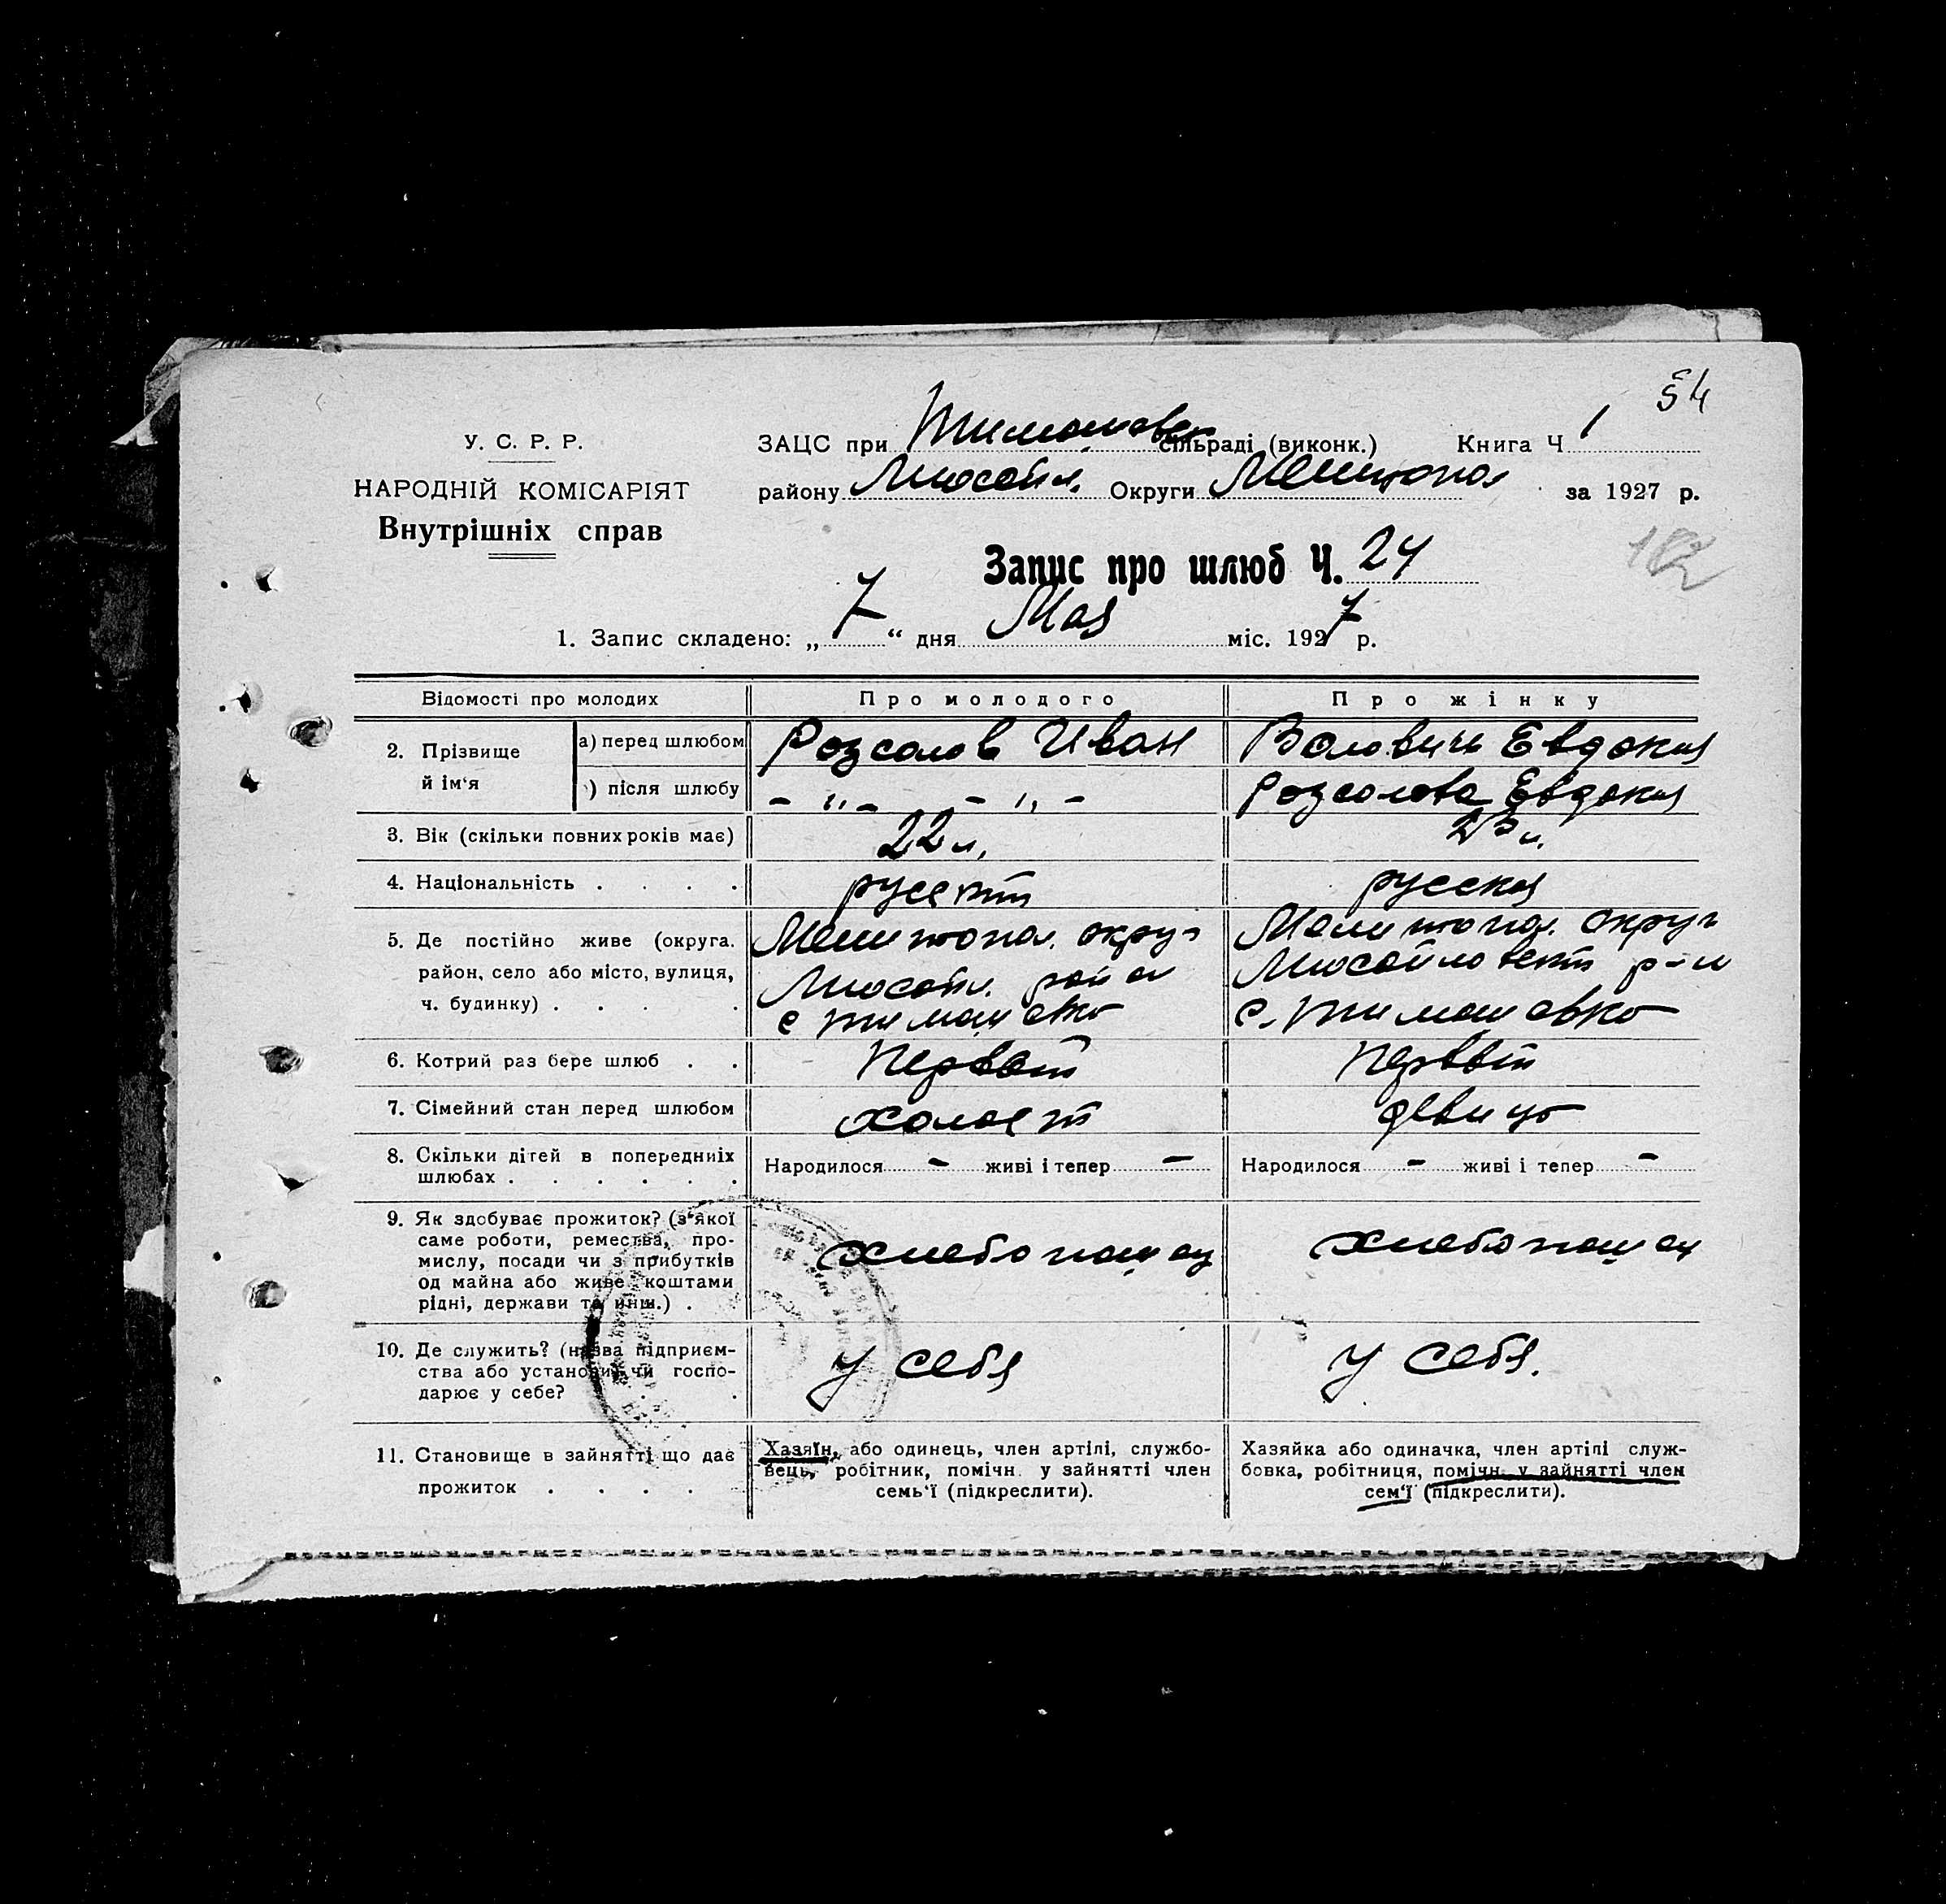 54
У. С. Р. Р.
НАРОДНІЙ КОМІСАРІЯТ
Внутрішніх справ
ЗАЦС при Тимошовск сільраді (виконк.) Книга Ч 1
району Округи Мелитопол за 1927 р.
Запис про шлюб Ч. 24
1. Запис складено: „ 7 “ дня Мая міс. 1927 р.
Відомості про молодих Про молодого Про жінку
2. Прізвище й ім‘я
а) перед шлюбом Розсолов Иван Воловичь Евдокия
) після шлюбу – „ – – „ – Розсолова Евдокия
3. Вік (скільки повних років має) 22 л. 23 л.
4. Національність . . . . русский русская
5. Де постійно живе (округа. Мелитопол. округ Мелитопол. округ
район, село або місто, вулиця, район р-н
ч. будинку) . . . . с Тимошовко с. Тимошовко
6. Котрий раз бере шлюб . . Первый Первый
7. Сімейний стан перед шлюбом холост девицо
8. Скільки дітей в попередниіх Народилося – живі і тепер – Народилося – живі і тепер –
шлюбах . . . . . .
9. Як здобуває прожиток? (з‘якої
саме роботи, ремества, про-
мислу, посади чи з прибутків хлебопашец хлебопашец
од майна або живе коштами
рідні, держави та инш.) .
10. Де служить? (назва підприєм-
ства або установи, чи госпо- у себя у себя.
дарює у себе? . .
11. Становище в зайнятті що дає
прожиток . . . .
Хазяїн, або одинець, член артілі, службо-
вець, робітник, помічн. у зайнятті член
семь‘ї (підкреслити).
Хазяйка або одиначка, член артілі служ-
бовка, робітниця, помічн. у зайнятті член
сем‘ї (підкреслити).